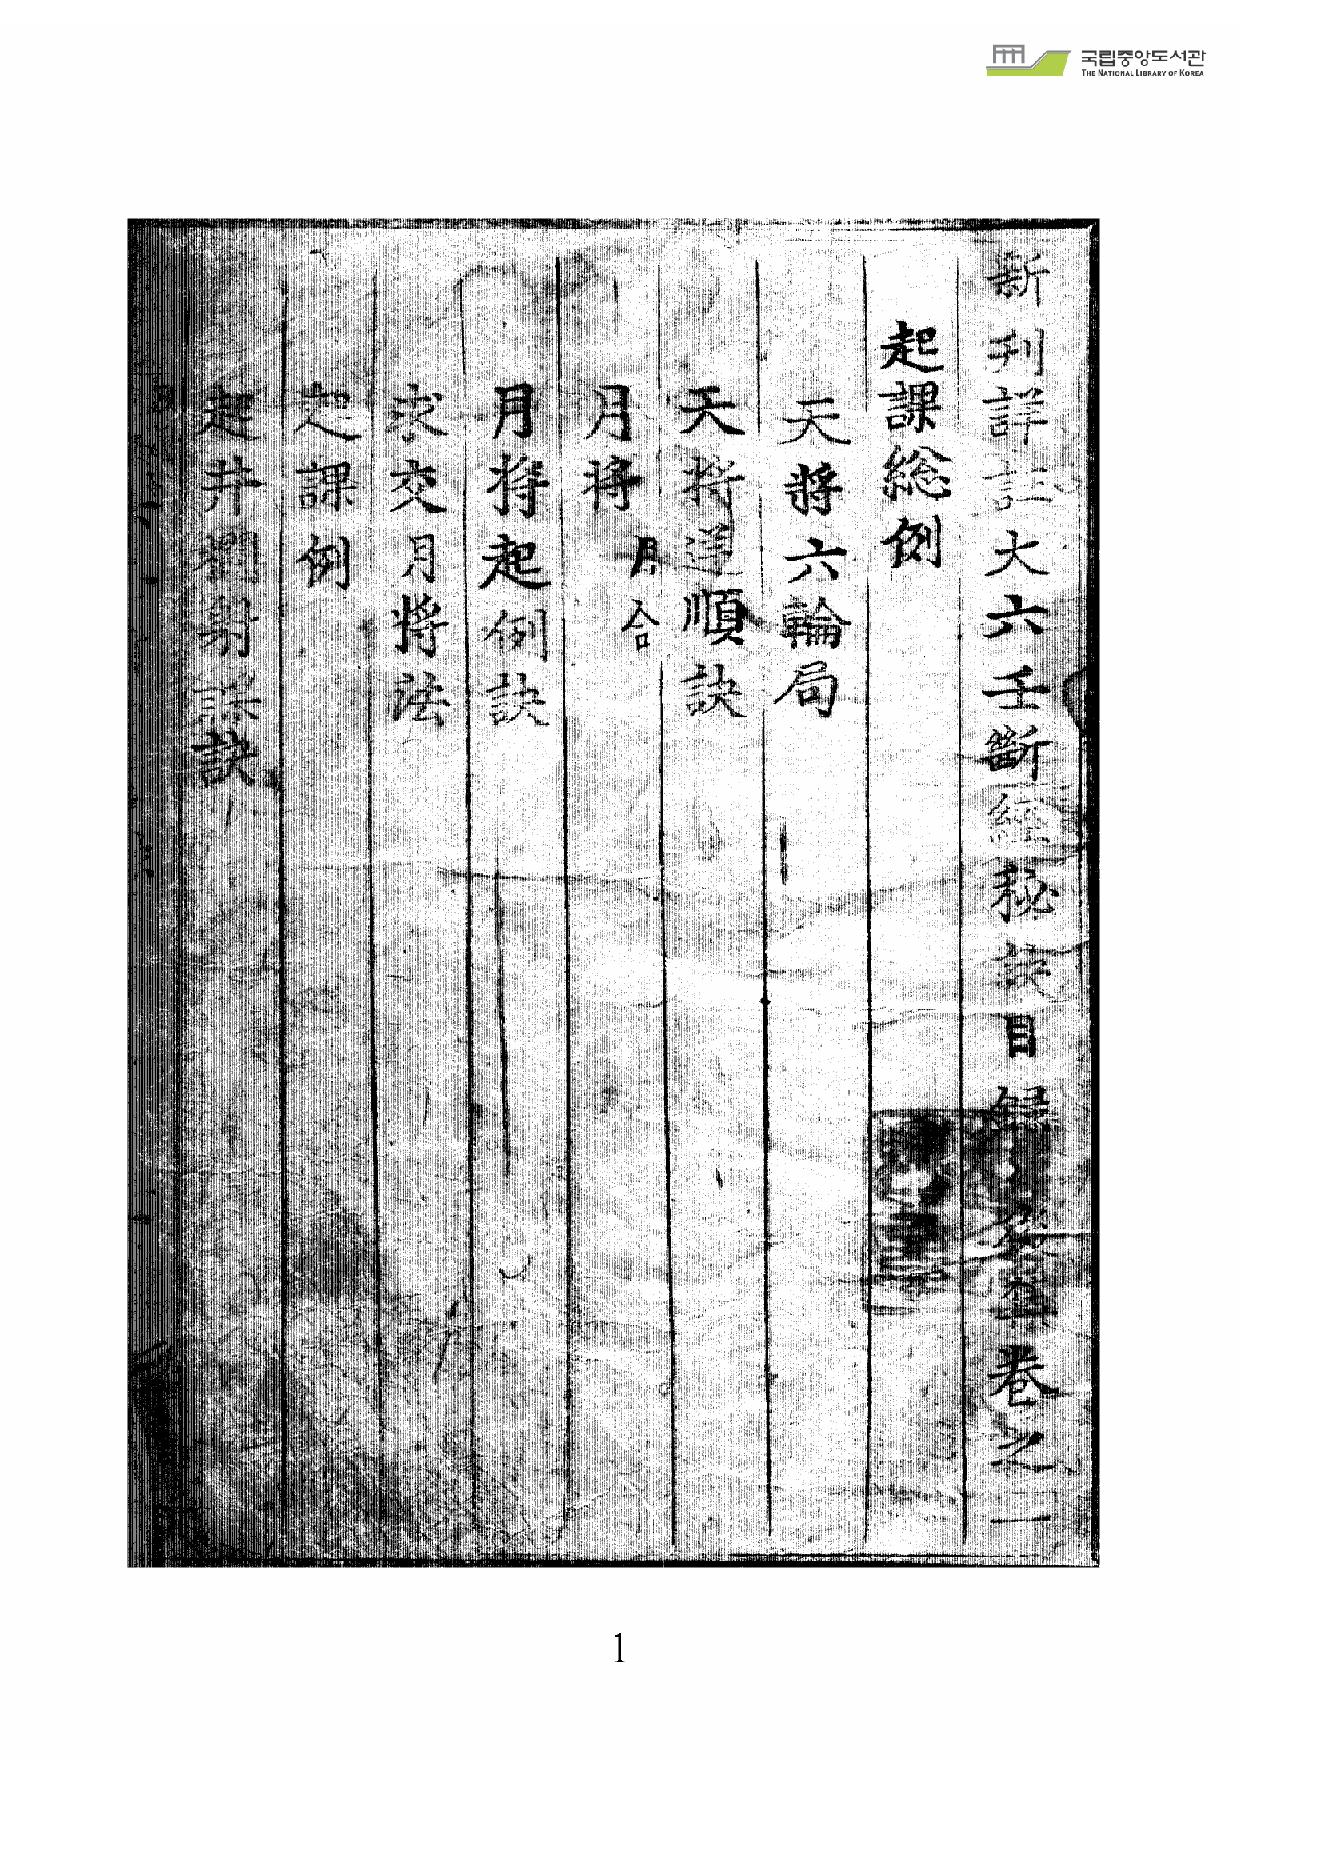 국립중앙도서관
THE NATIONAL LIBRARY OF KOREA
新刊詳註大六壬斷經秘訣目錄 卷之一
起課総例
天將六輪局
天將逆順訣
月將 月合
月將起例訣
求交月將法
起課例
起井欄射課訣
1